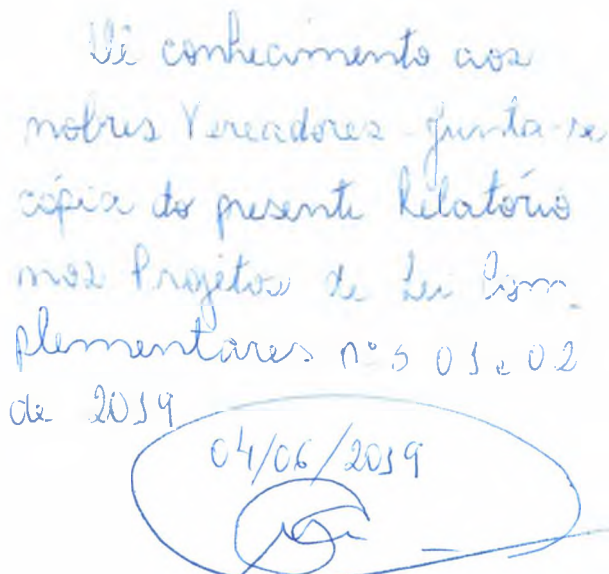 Dê conhecimento aos
nobres Vereadores. Junta-se
cópia do presente Relatório
nos Projetos de Lei Com-
plementares nºs 01 e 02
de 2019
04/06/2019